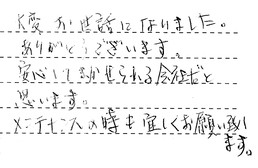 大変お世話になりました。
ありがとうございます。
安心してまかせられる会社だと
思います。
メンテナンスの時も宜しくお願い致し
ます。